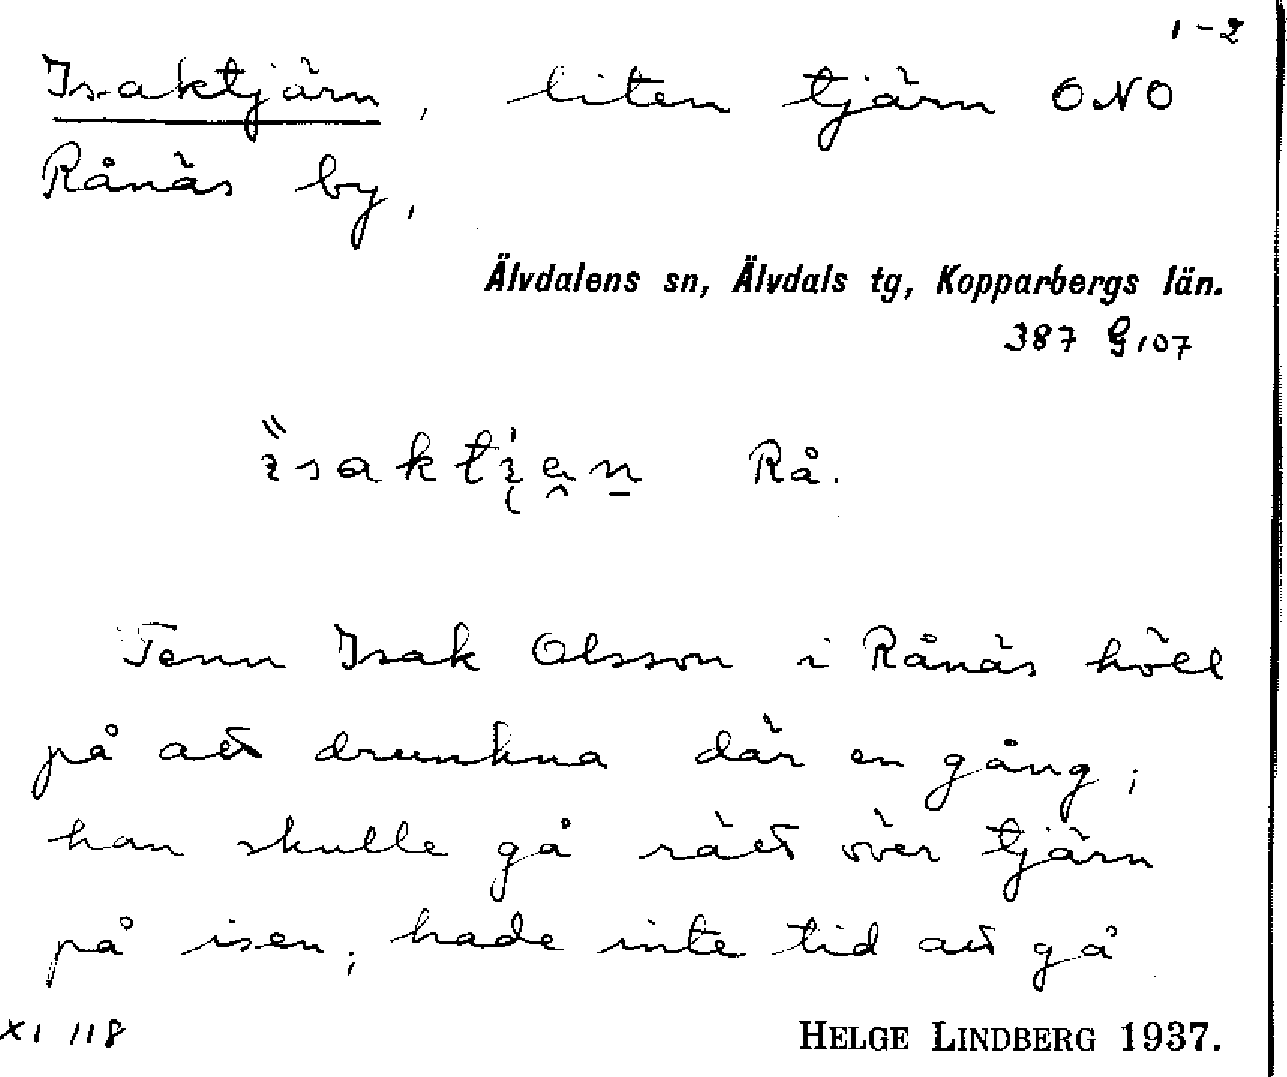 1-2
Isaktjärn, liten tjärn ONO
Rånäs by,
Älvdalens sn, Älvdals tg, Kopparbergs län.
387 G 107
Rå.
Tenn Isak Olsson i Rånäs höll
på att drunkna där en gång;
han skulle gå rätt över tjärn
på isen; hade inte tid att gå
XI 118
HELGE LINDBERG 1937.